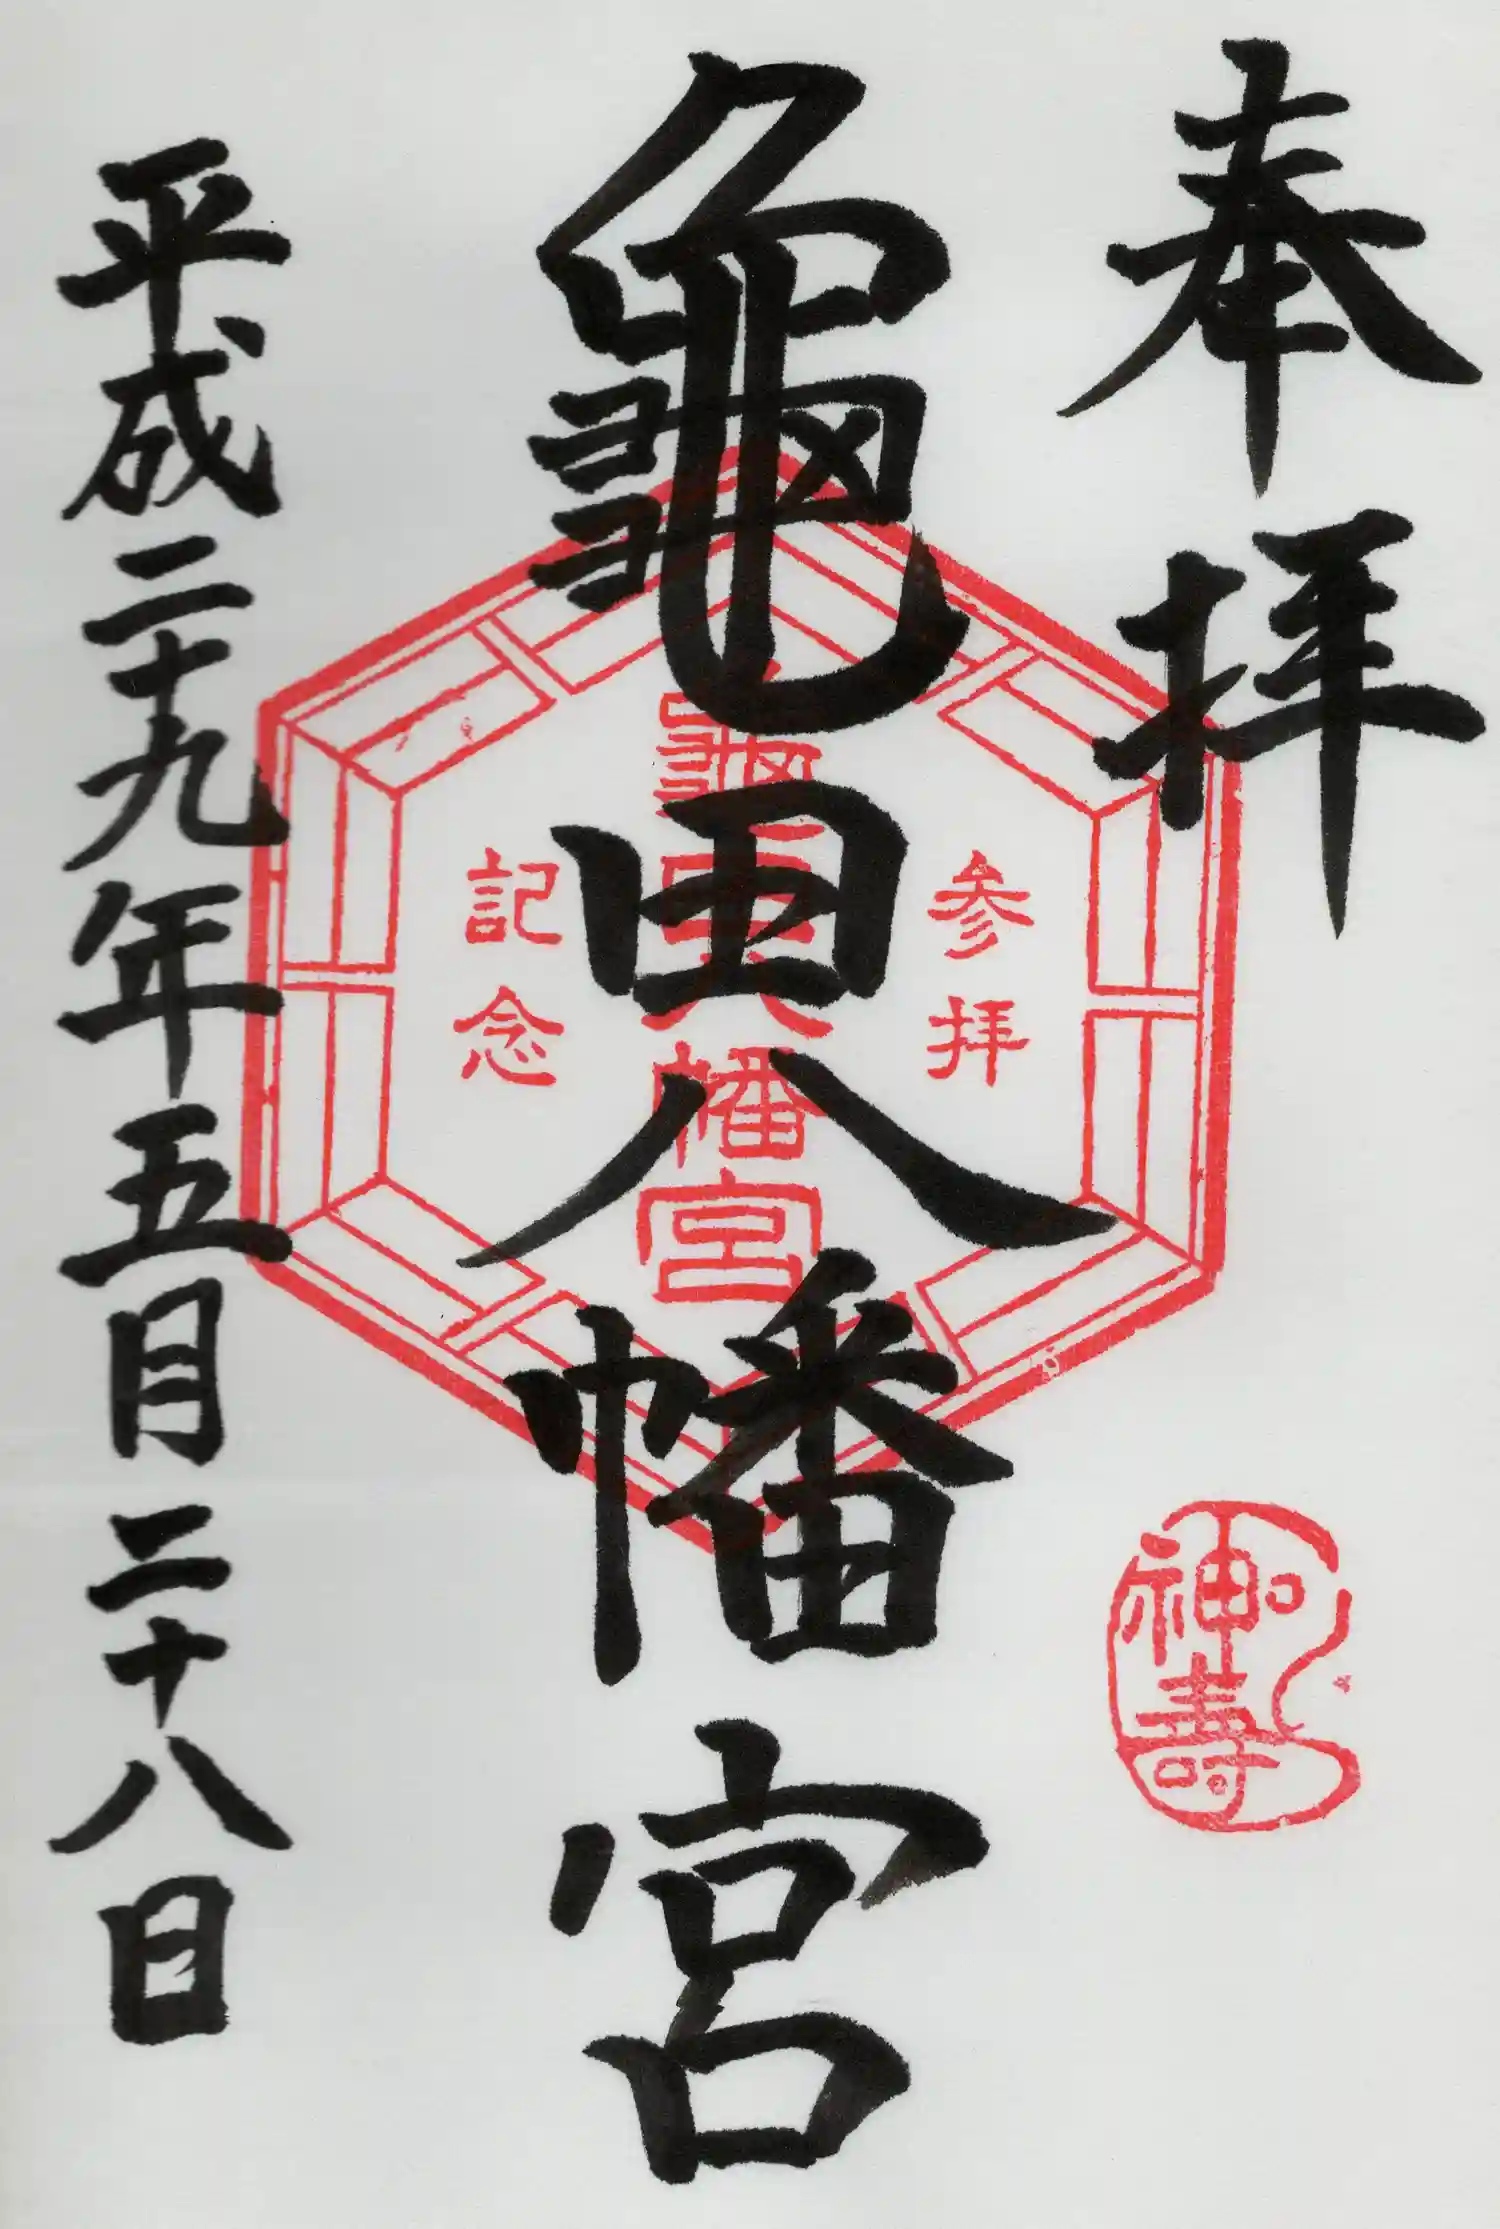 奉拝
参拝
龜田八幡宮
龜田八幡宮
記念
平成二十九年五月二十八日
神壽